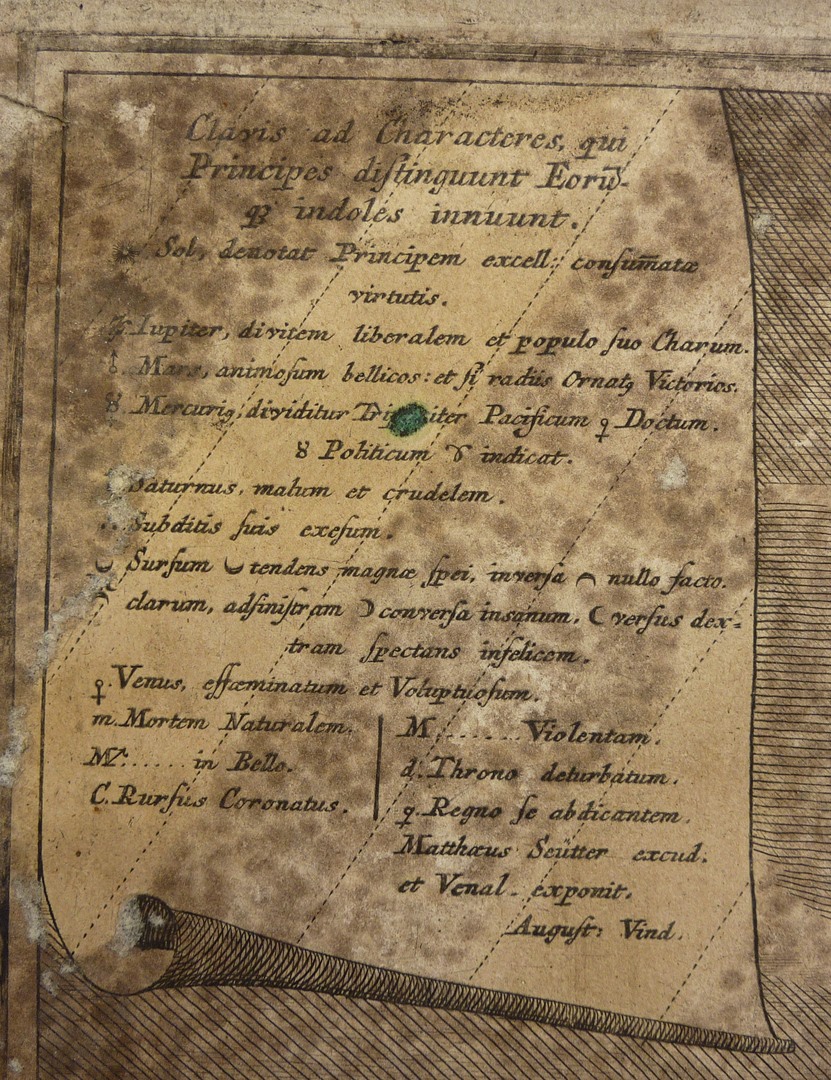 Clavis ad Characteres, qui
Principes diſtinguunt Eorū-
qȝ indoles innuunt.
Sol, denotat Principem excell: conſum̄atæ
virtutis.
♃ Iupiter, divitem liberalem et populo ſuo Charum.
♂. Mars, animoſum bellicos: et ſi radiis Ornatꝰ Victorios.
☿. Mercuriꝰ, dividitur Pacificum ♀ Doctum.
♉ Politicum ♈ indicat.
Saturnus, malum et crudelem.
Subditis ſuis exeſum.
Surſum ◡ tendens magnæ ſpei, inverſa ⌒ nullo facto.
clarum, adſiniſtram ☽ converſa insanum, ☾ verſus dex=
tram ſpectans infelicem.
♀. Venus, effœminatum et Voluptuoſum.
m. Mortem Naturalem.
M♂. ..... in Bello.
C. Rurſus Coronatus.
M ....... Violentam.
d. Throno deturbatum.
q. Regno ſe abdicantem.
Matthæus Seütter excud.
et Venal. exponit.
Auguſt: Vind.